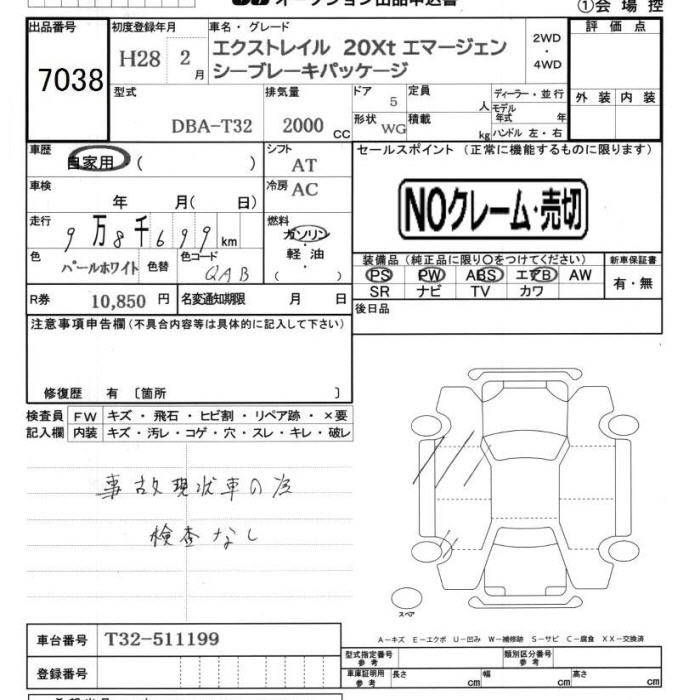 オークション出品申込書
①会場控
出品番号 初度登録年月 車名・グレード 評価点
7038 H28 2月 エクストレイル 20Xt エマージェン
シーブレーキパッケージ
2WD
・
4WD
外装 内装
型式 排気量 ドア 定員 ディーラー・並行
DBA-T32 2000 CC 5 人 モデル年式 年
形状 WG 積載 kg ハンドル 左・右
車歴 シフト セールスポイント (正常に機能するものに限ります)
自家用 ( ) AT
車検 冷房
年 月( 日) AC
NOクレーム・売切
走行 燃料
9万8千699km ガソリン
軽油
( )
色 色コード
パールホワイト 色替 QAB
装備品 (純正品に限り〇をつけてください) 新車保証書
PS PW ABS エアB AW 有・無
SR ナビ TV カワ
R券 10,850円 名変通知期限 月 日
後日品
注意事項申告欄 (不具合内容等は具体的に記入して下さい)
修復歴 有 〔箇所 〕
検査員 FW キズ・飛石・ヒビ割・リペア跡・×要
記入欄 内装 キズ・汚レ・コゲ・穴・スレ・キレ・破レ
事故現状車の為
検査なし
スペア
A-キズ E-エクボ U-凹み W-補修跡 S-サビ C-腐食 XX-交換済
車台番号 T32-511199
型式指定番号 参考 類別区分番号 参考
登録番号
車庫証明用 参考 長さ cm 幅 cm 高さ cm